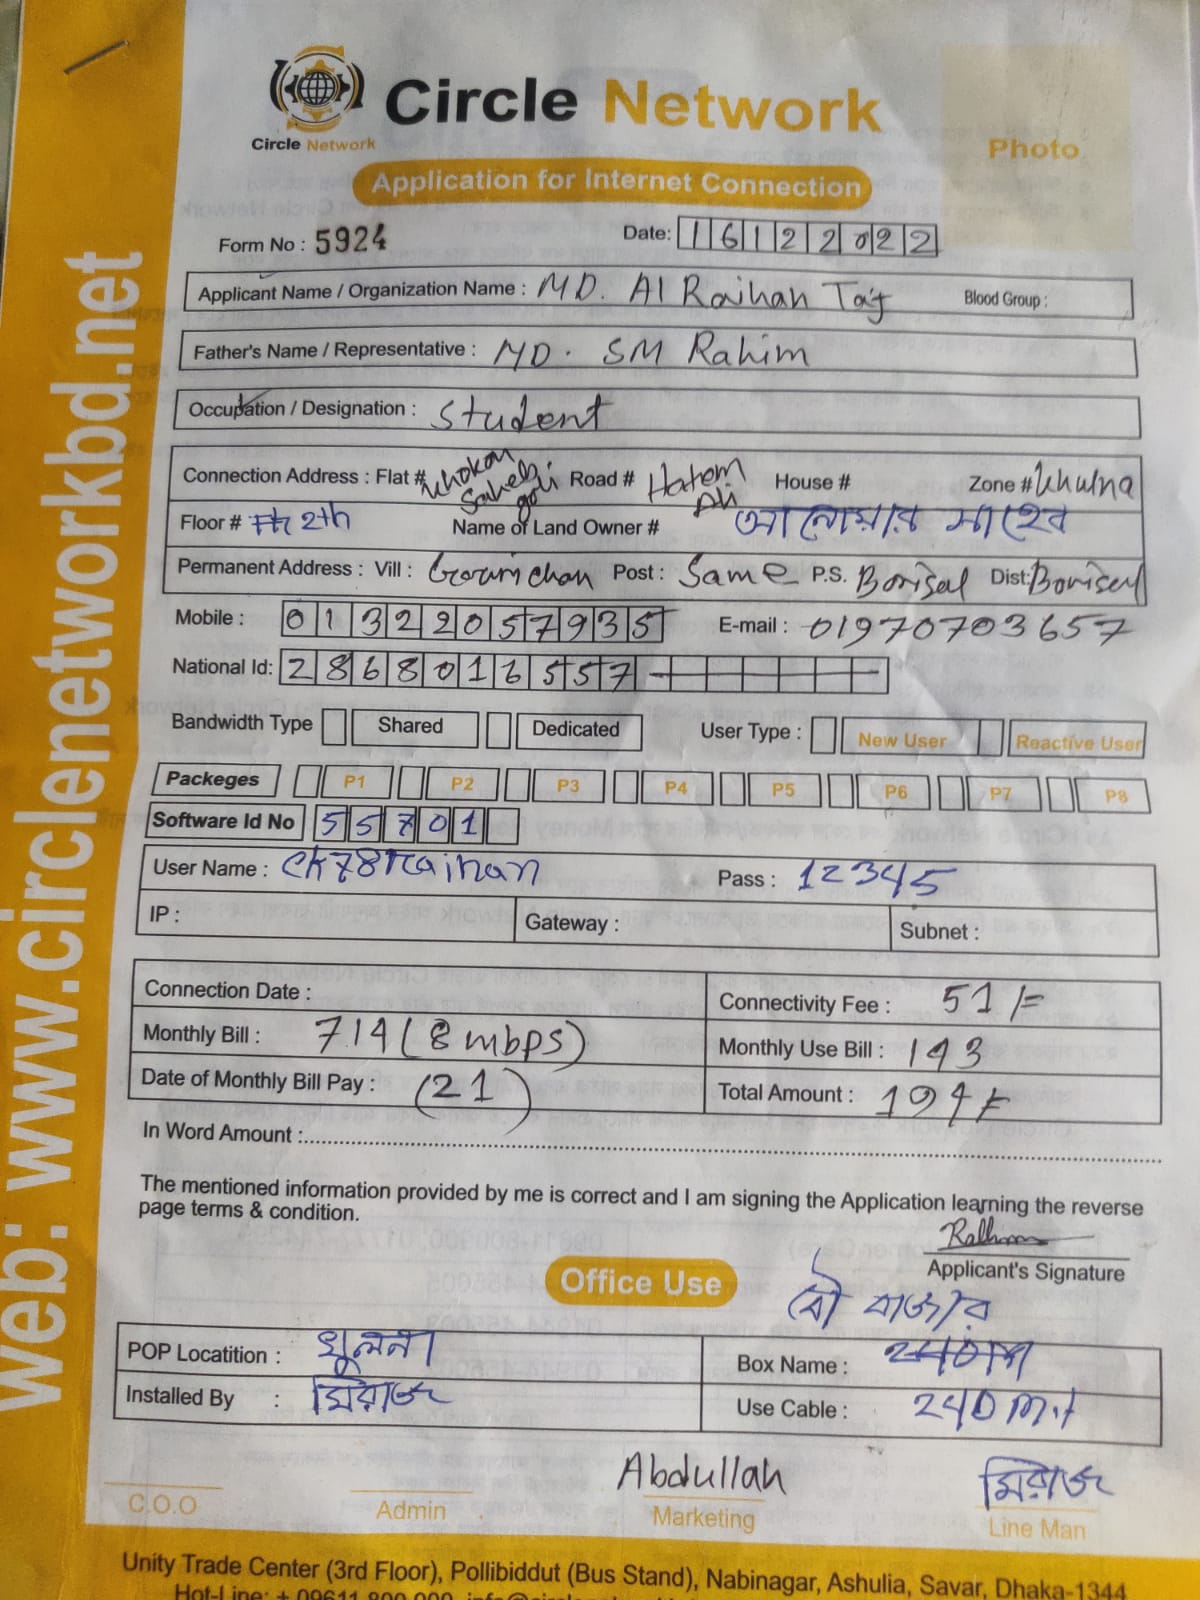 web: www.circlenetworkbd.net
Circle Network
Circle Network
Photo
Application for Internet Connection
Form No : 5924 Date: 16122022
Applicant Name / Organization Name : MD. Al Raihan Taj Blood Group :
Father's Name / Representative : MD. SM Rahim
Occupation / Designation : Student
Connection Address : Flat # Khokon Saheb goli Road # Hatem Ali House # Zone # Khulna
Floor # 2th Name of Land Owner # আনোয়ার সাহেব
Permanent Address : Vill : Post : Same P.S. Borisal Dist: Borisal
Mobile : 01322057935 E-mail : 01970703657
National Id: 2868016557
Bandwidth Type Shared Dedicated User Type : New User Reactive User
Packeges P1 P2 P3 P4 P5 P6 P7 P8
Software Id No 55701
User Name : ck78raihan Pass : 12345
IP : Gateway : Subnet :
Connection Date : Connectivity Fee : 51/=
Monthly Bill : 714 (8 mbps) Monthly Use Bill : 143
Date of Monthly Bill Pay : (21) Total Amount : 194/=
In Word Amount :
The mentioned information provided by me is correct and I am signing the Application learning the reverse
page terms & condition.
Rahim
Applicant's Signature
Office Use
বৌ বাজার
POP Locatition : খুলনা Box Name :
Installed By : মিরাজ Use Cable : 240 Mit
Abdullah মিরাজ
C.O.O Admin Marketing Line Man
Unity Trade Center (3rd Floor), Pollibiddut (Bus Stand), Nabinagar, Ashulia, Savar, Dhaka-1344
Hot-Line: + 09611 800 900